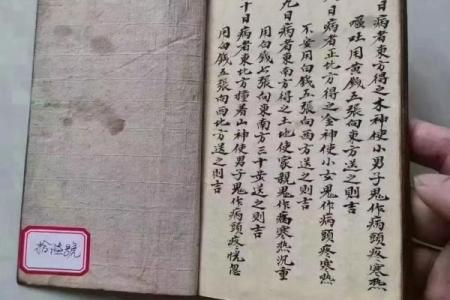 日病者東方得之木神使小男子鬼作病頭疼寒熱
嘔吐用黄錢五張向東方送之則吉
日病者正北方得之金神使小女鬼作病頭疼寒熱
不安用白錢五張向西方送之則吉
九日病者東南方得之土地使家親鬼作病寒熱沉重
用白錢七張向東南方三十步送之則吉
十日病者東北方撞着山神使男鬼作病頭疼恍忽
用白錢五張向西北方送之則吉
拾陸號